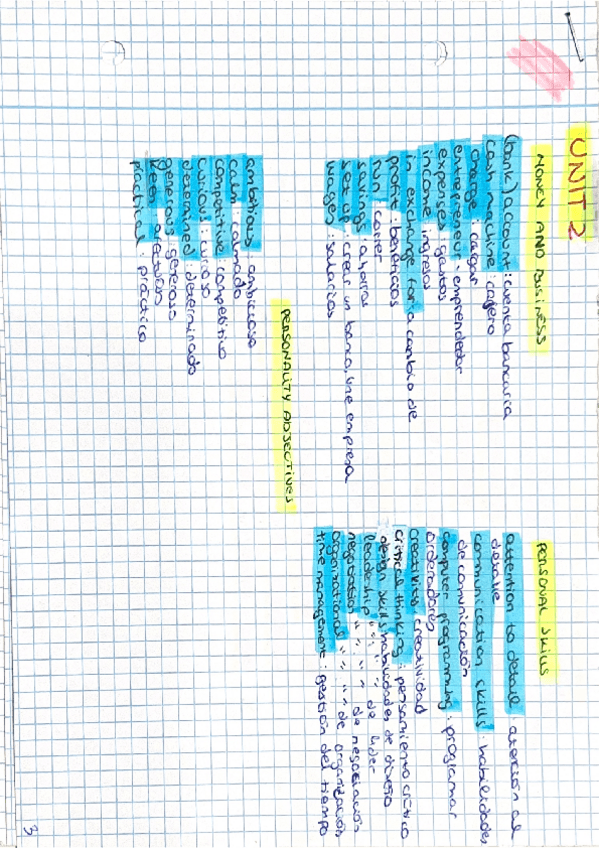 UNIT 2
MONEY AND BUSINESS
(bank) account: cuenta bancaria
cash machine: cajero
charge: cargar
entrepreneur: emprendedor
expenses: gastos
income: ingresos
in exchange for: a cambio de
profit: beneficios
run: correr
savings: ahorros
set up: crear un banco, una empresa
wages: salarios
PERSONALITY ADJECTIVES
ambitious: ambicioso
calm: calmado
competitive: competitivo
curious: curioso
determined: determinado
generous: generoso
keen: afectuoso
practical: práctico
PERSONAL SKILLS
attention to detail: atención al
detalle
communication skills: habilidades
de comunicación
computer programming: programar
ordenadores
creativity: creatividad
critical thinking: pensamiento crítico
design skills: habilidades de diseño
leadership " : " " de líder
negotiation " : " " de negociación
organizational " : " " de organización
time management: gestión del tiempo
3